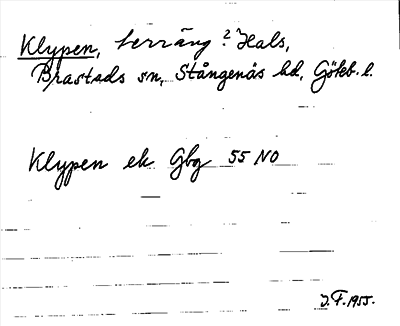 Klypen, terräng ? Hals,
Brastads sn, Stångenäs hd, Göteb. l.
Klypen ek Gbg 55 NO
J.F. 1955.